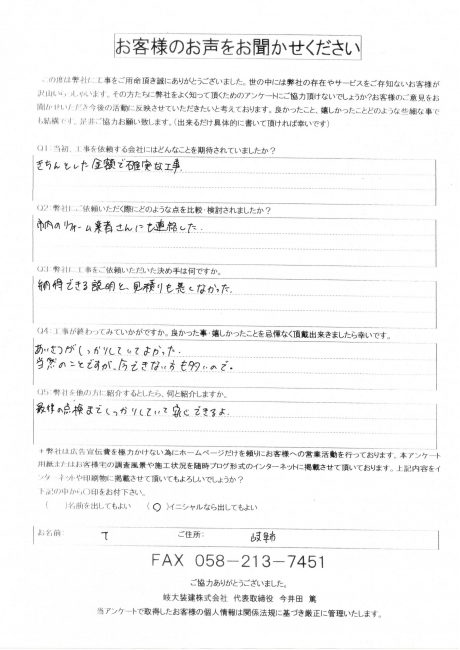 お客様のお声をお聞かせください
この度は弊社に工事をご用命頂き誠にありがとうございました。世の中には弊社の存在やサービスをご存知ないお客様が
沢山いらっしゃいます。その方たちに弊社をよく知って頂くためのアンケートにご協力頂けないでしょうか?お客様のご意見をお
聞かせいただき今後の活動に反映させていただきたいと考えております。良かったこと、嬉しかったことどのような些細な事で
も結構です。是非ご協力お願い致します。(出来るだけ具体的に書いて頂ければ幸いです)
Q1:当初、工事を依頼する会社にはどんなことを期待されていましたか?
きちんとした金額で確実な工事.
Q2:弊社にご依頼いただく際にどのような点を比較・検討されましたか?
市内のリフォーム業者さんにも連絡した.
Q3:弊社に工事をご依頼いただいた決め手は何ですか。
納得できる説明と、見積りも悪くなかった.
Q4:工事が終わってみていかがですか。良かった事・嬉しかったことを忌憚なく頂戴出来きましたら幸いです。
あいさつがしっかりしていてよかった.
当然のことですが、今できない方も多いので。
Q5:弊社を他の方に紹介するとしたら、何と紹介しますか。
最後の点検までしっかりしていて安心できるよ.
+弊社は広告宣伝費を極力かけない為にホームページだけを頼りにお客様への営業活動を行っております。本アンケート
用紙またはお客様宅の調査風景や施工状況を随時ブログ形式のインターネットに掲載させて頂いております。上記内容をイ
ンターネットや印刷物に掲載させて頂いてもよろしいでしょうか?
下記の中から○印をお付下さい。
( )名前を出してもよい (○)イニシャルなら出してもよい
お名前: T ご住所: 岐阜市
FAX 058-213-7451
ご協力ありがとうございました。
岐大装建株式会社 代表取締役 今井田 篤
当アンケートで取得したお客様の個人情報は関係法規に基づき厳正に管理いたします。